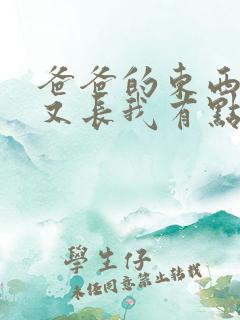 爸爸的東西
又長我有點
學生仔
未经同意禁止转载